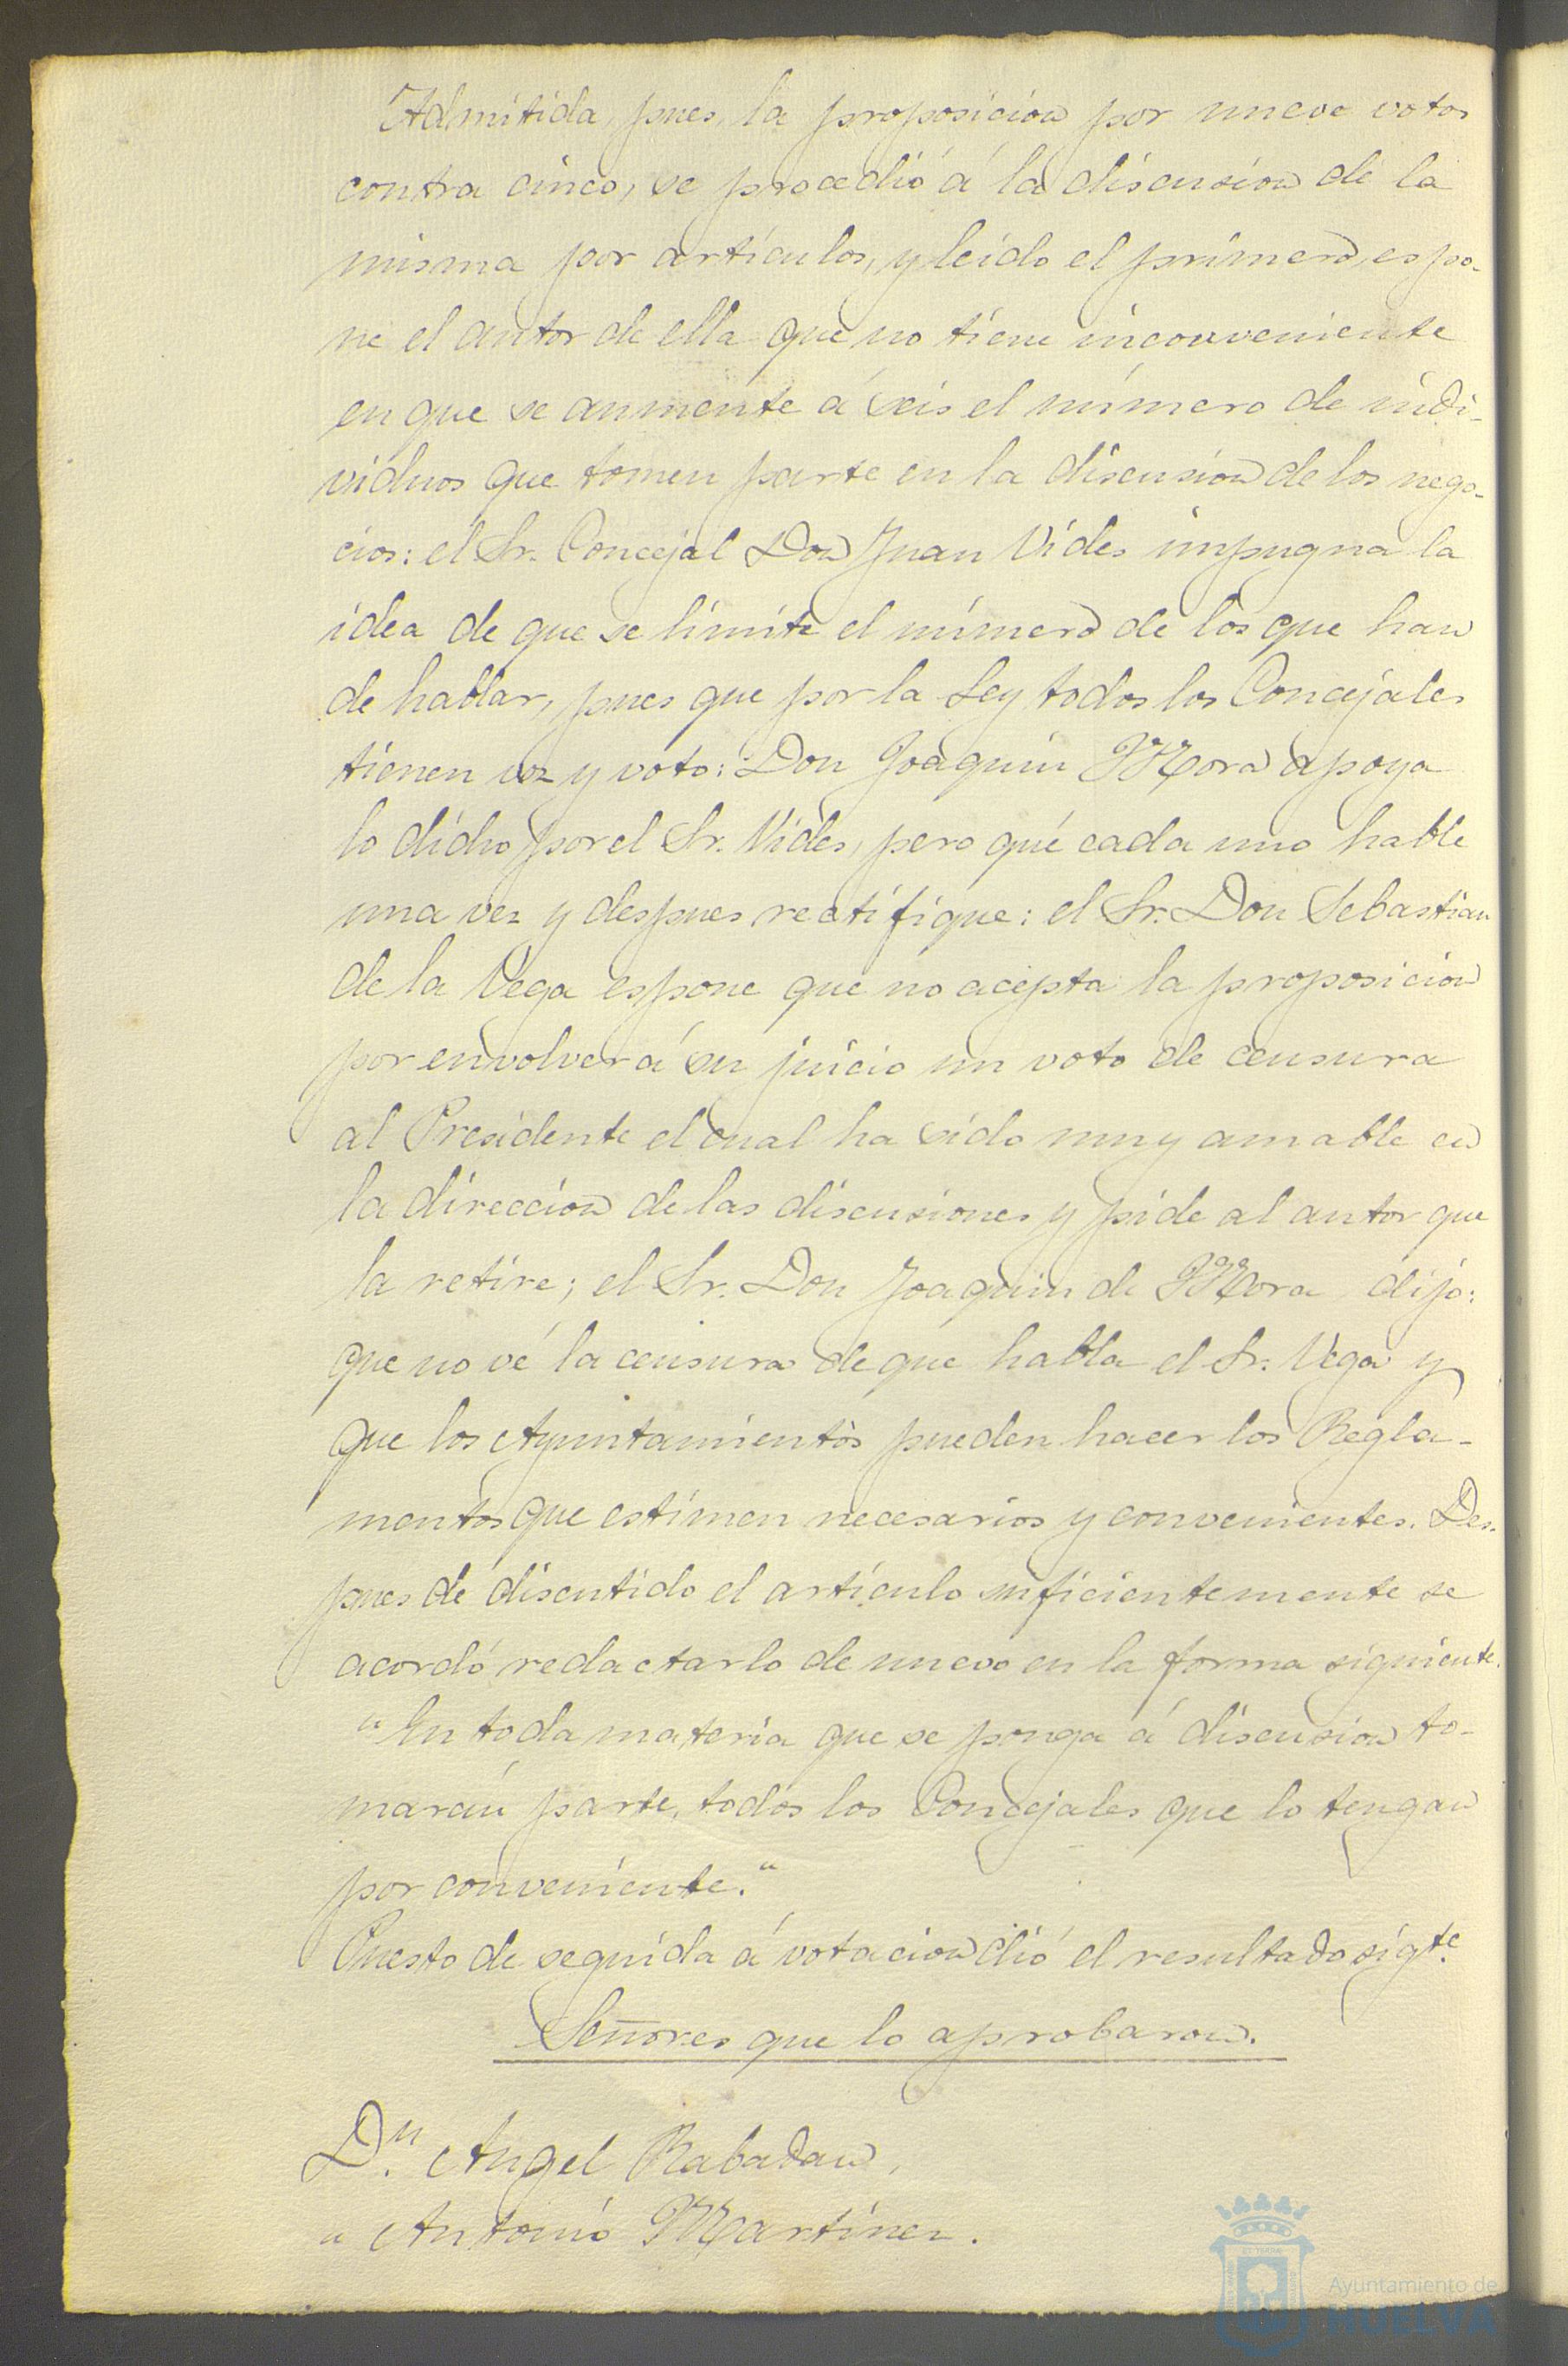 Admitida, pues, la proposicion por nueve votos
contra cinco, se procedió á la discusion de la
misma por artículos, y leido el primero, espo-
ne el autor de ella que no tiene inconveniente
en que se aumente á seis el número de indi-
viduos que tomen parte en la discusion de los nego-
cios: el Sr. Concejal Don Juan Vides impugna la
idea de que se limite el número de los que han
de hablar, pues que por la Ley todos los Concejales
tienen voz y voto: Don Joaquin Mora apoya
lo dicho por el Sr. Vides, pero que cada uno hable
una vez y despues rectifique: el Sr. Don Sebastian
de la Vega espone que no acepta la proposicion
por envolver á su juicio un voto de censura
al Presidente el cual ha sido muy amable en
la direccion de las discusiones y pide al autor que
la retire; el Sr. Don Joaquin de Mora dijo:
que no vé la censura de que habla el Sr. Vega y
que los Ayuntamientos pueden hacer los Regla-
mentos que estimen necesarios y convenientes. Des-
pues de discutido el artículo suficientemente se
acordó redactarlo de nuevo en la forma siguiente.
"En toda materia que se ponga á discusion to-
marán parte, todos los Concejales que lo tengan
por conveniente."
Puesto de seguida á votacion dió el resultado sigte.
Señores que lo aprobaron.
Dn. Angel Rabadan,
" Antonio Martinez.
Ayuntamiento de
HUELVA